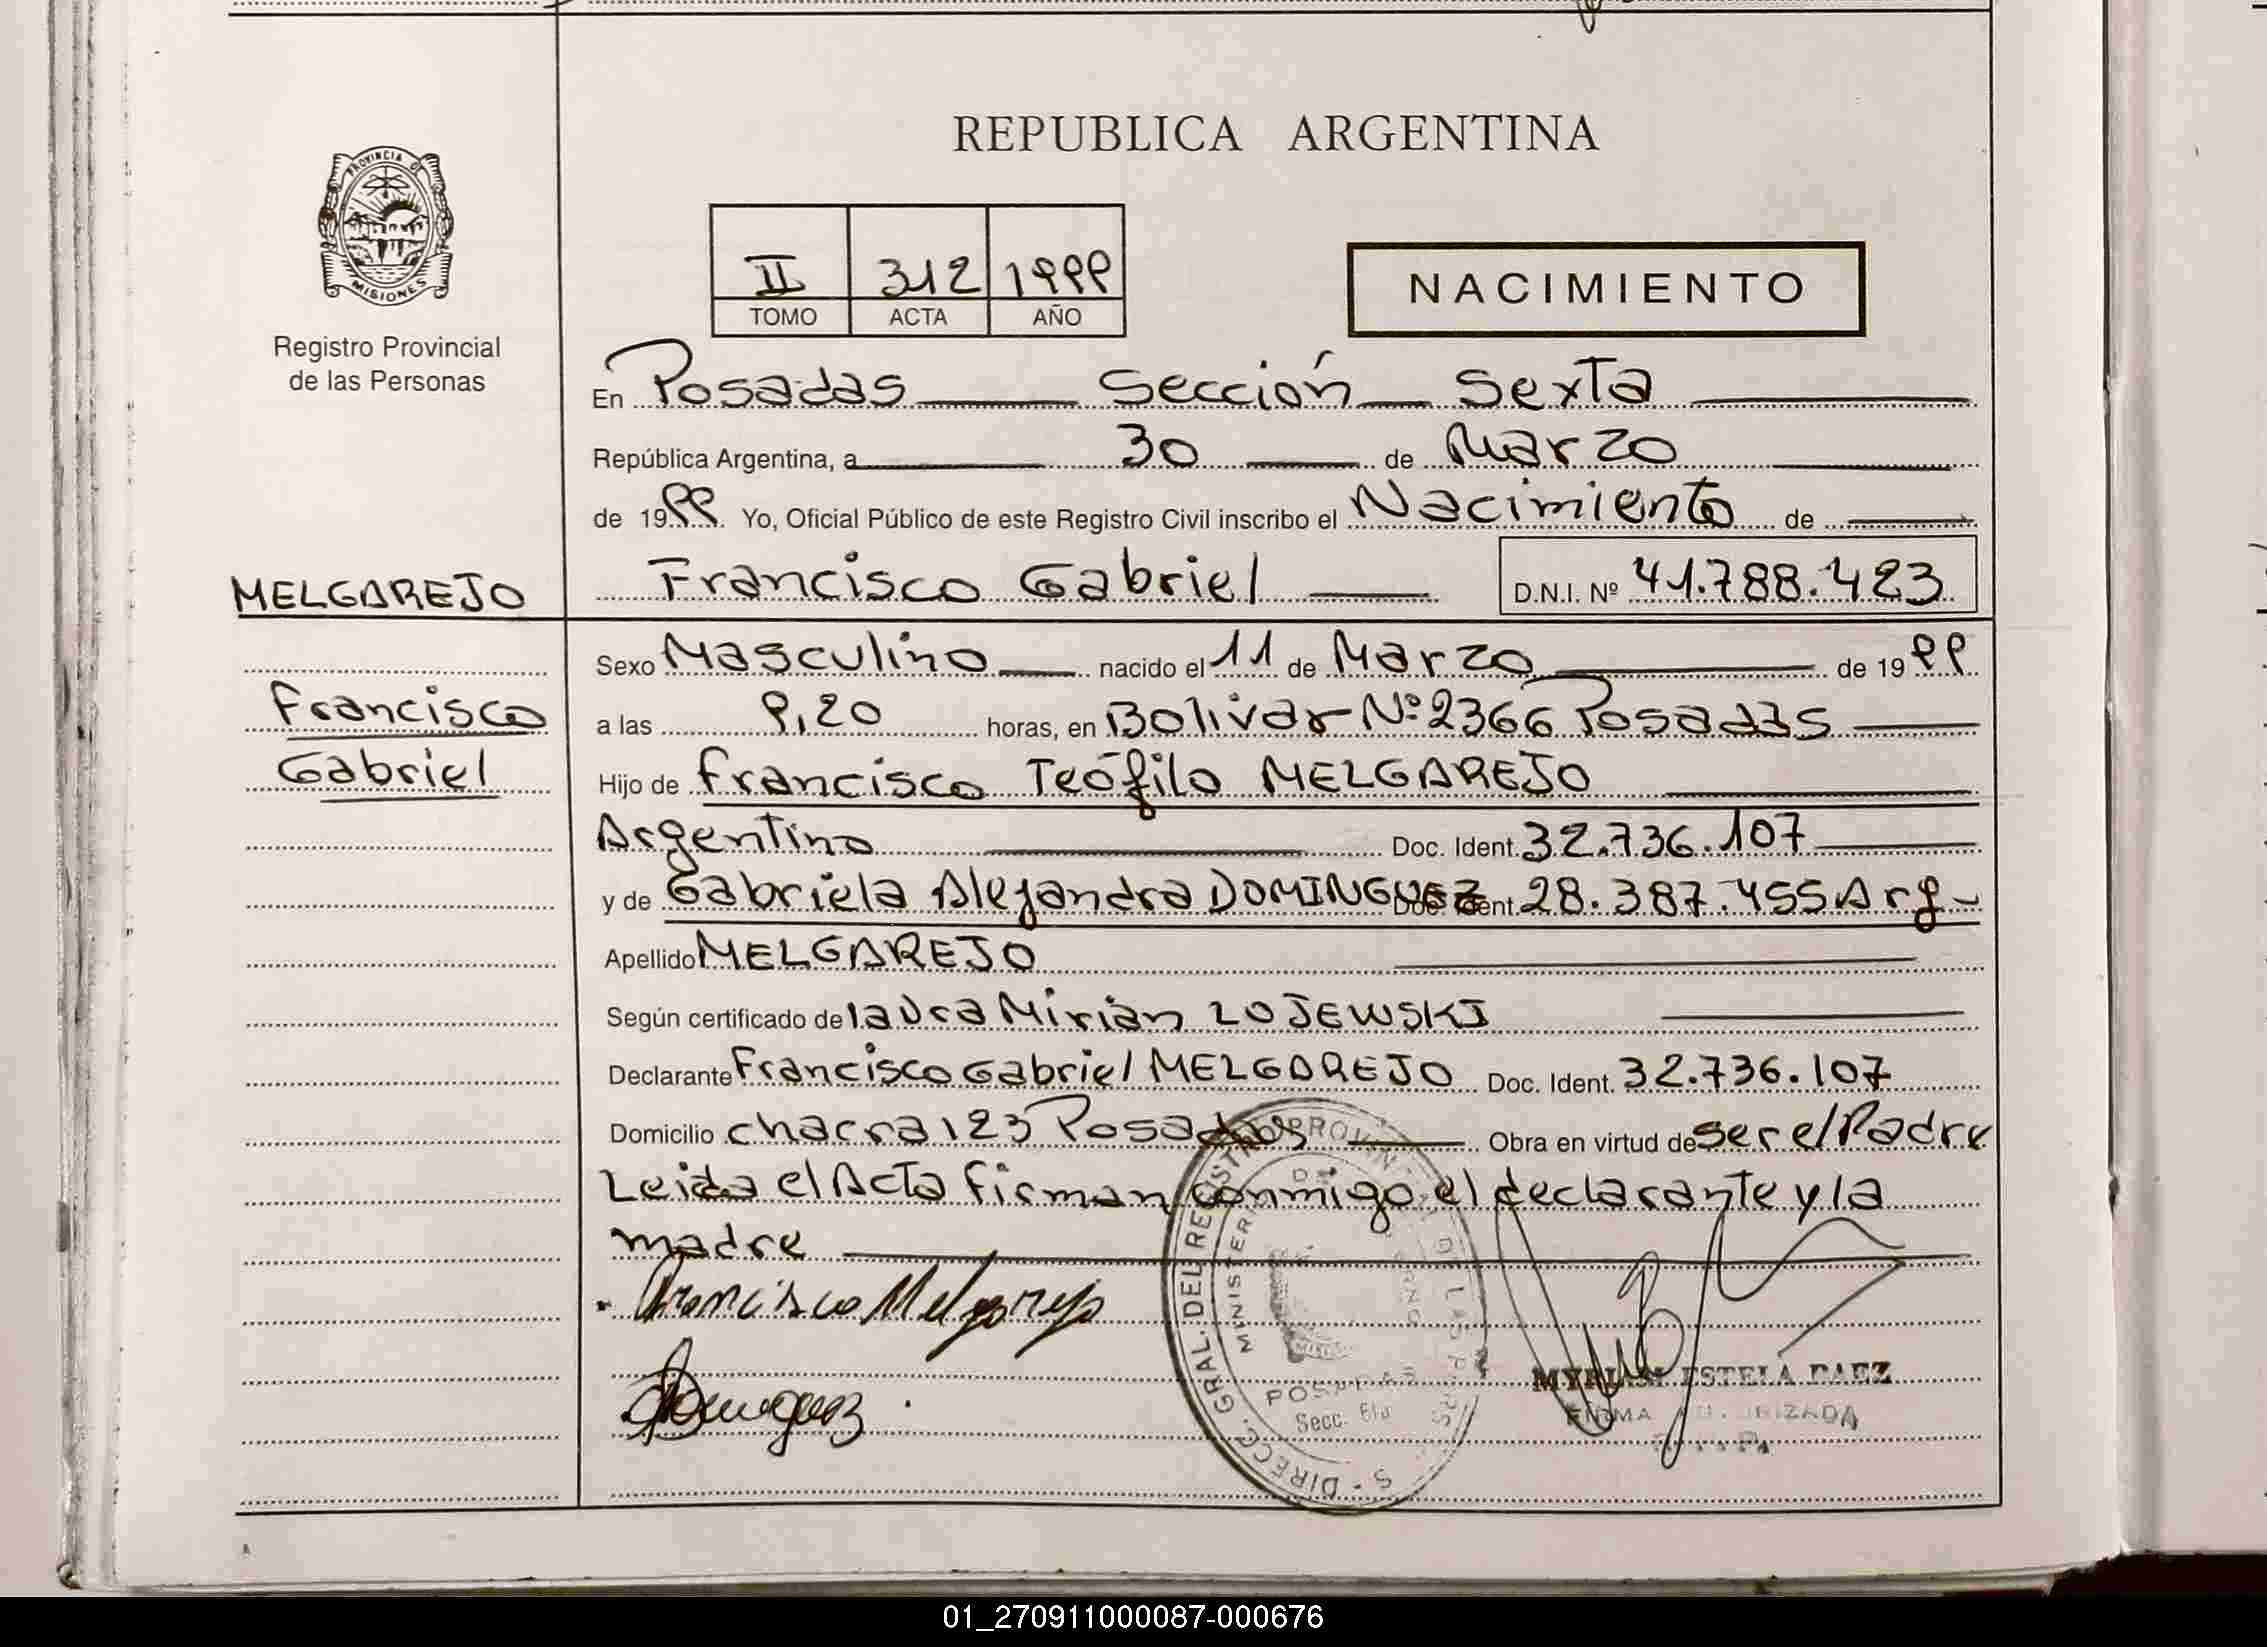 REPUBLICA ARGENTINA
PROVINCIA DE
MISIONES
Registro Provincial
de las Personas
II 312 1999
TOMO ACTA AÑO
NACIMIENTO
En Posadas Sección Sexta
República Argentina, a 30 de Marzo
de 1999. Yo, Oficial Público de este Registro Civil inscribo el Nacimiento de
MELGAREJO Francisco Gabriel D.N.I. Nº 41.788.423
Sexo Masculino nacido el 11 de Marzo de 1999
Francisco
a las 9,20 horas, en Bolivar Nº 2366 Posadas
Gabriel
Hijo de Francisco Teófilo MELGAREJO
Argentino Doc. Ident. 32.736.107
y de Gabriela Alejandra DOMINGUEZ Doc. Ident. 28.387.455 Arg-
Apellido MELGAREJO
Según certificado de laura Mirian ZOJEWSKI
Declarante Francisco Gabriel MELGAREJO Doc. Ident. 32.736.107
Domicilio chacra 123 Posadas Obra en virtud de ser el Padre
Leida el Acta firman conmigo el declarante y la
madre
Francisco Melgarejo
DIRECC. GRAL. DEL REGISTRO PROVINCIAL DE LAS PERS
MINISTERI DE
POSADAS
Secc. 6ta
MYRIAM ESTELA PAEZ
FIRMA AUTORIZADA
01_270911000087-000676